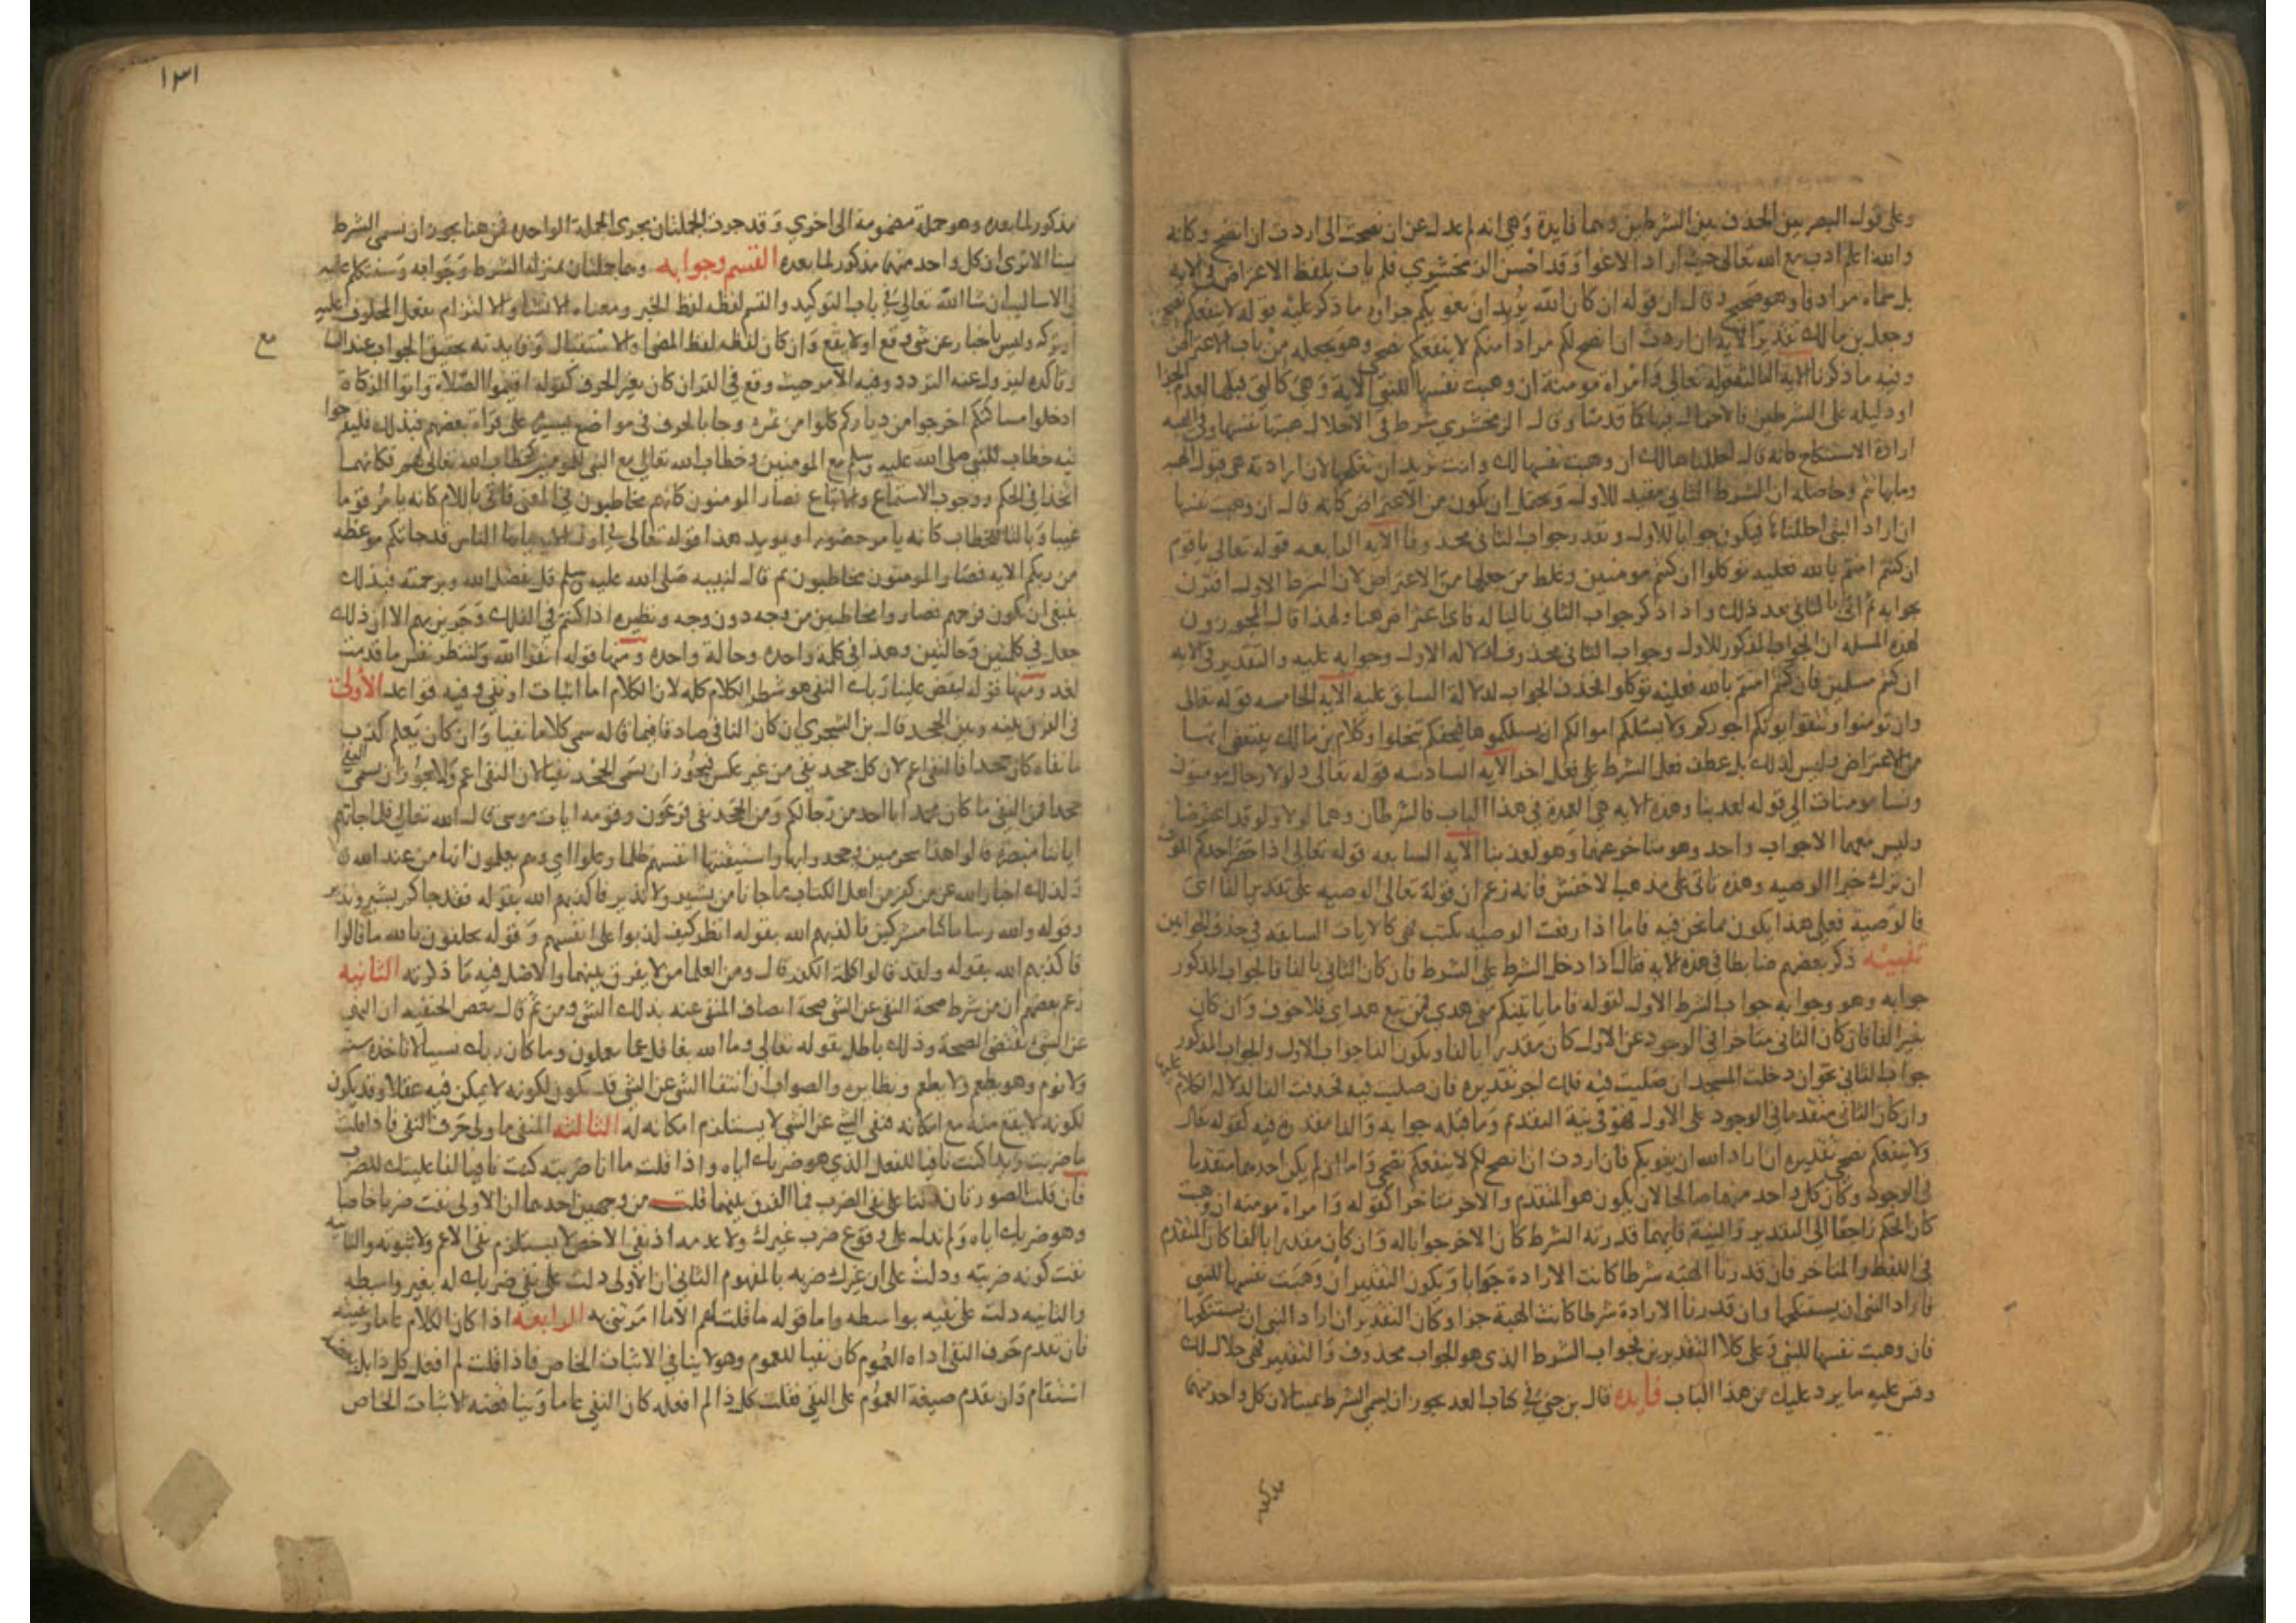 وعلى قول البصريين الحذف بين الشرطين وهما فايدة وهي انه لم عدل عن ان نصحت الى اردت ان انصح وكانه
والله اعلم ادب مع الله تعالى حيث اراد الاغوا وقد احسن الزمخشري فلم يات بلفظ الاعتراض في الايه
بل سماه مرادفا وهو صحيح وقال ان قوله ان كان الله يريد ان يغويكم جزاوه ما ذكر عليه قوله لا ينفعكم نصحي
وجعل بن مالك تقدير الايه ان اردت ان انصح لكم مرادا منكم لا ينفعكم نصحي وهو يجعله من باب الاعتراض
وفيه ما ذكرنا الاية الثالثة قوله تعالى وامراة مومنة ان وهبت نفسها للنبي الاية وهي كالتي قبلها لتقدم الجزا
او دليله على الشرطين فالاحتمال فيها كما قدمنا وقال الزمخشري شرط في الاحلال هبتها نفسها وفي الهبه
ارادة الاستنكاح كانه قال احللناها لك ان وهبت نفسها لك وانت تريد ان تنكحها لان ارادته هي قبول الهبه
وما بها تتم وحاصله ان الشرط الثاني مقيد للاول ويحتمل ان يكون من الاعتراض كانه قال ان وهبت نفسها
ان اراد النبي احللناها فيكون جوابا للاول ويقدر جواب الثاني محذوفا الاية الرابعه قوله تعالى ياقوم
ان كنتم امنتم بالله فعليه توكلوا ان كنتم مومنين وغلط من جعلها من الاعتراض لان الشرط الاول اقترن
بجوابه ثم اتى بالثاني بعد ذلك واذا ذكر جواب الثاني تاليا له فاي اعتراض هنا ولهذا قال المجوزون
لهذه المسله ان الجواب المذكور للاول وجواب الثاني محذوف لدلاله الاول وجوابه عليه والتقدير في الايه
ان كنتم مسلمين فان كنتم امنتم بالله فعليه توكلوا فحذف الجواب لدلالة السابق عليه الاية الخامسه قوله تعالى
وان تومنوا وتتقوا يوتكم اجوركم ولا يسئلكم اموالكم ان يسئلكموها فيحفكم تبخلوا وكلام بن مالك يقتضي انها
من الاعتراض وليس كذلك بل عطف فعل الشرط على فعل اخر الاية السادسه قوله تعالى ولولا رجال مومنون
ونسا مومنات الى قوله لعذبنا وهذه الايه هي العمدة في هذا الباب فالشرطان وهما لولا ولو قد اعترضا
وليس معهما الا جواب واحد وهو متاخر عنهما وهو لعذبنا الاية السابعه قوله تعالى اذا حضر احدكم الموت
ان ترك خيرا الوصيه وهذه تاتي على مذهب الاخفش فانه زعم ان قوله تعالى الوصيه على تقدير الفا اي
فالوصية فعلى هذا يكون مما نحن فيه فاما اذا رفعت الوصيه بكتب فهي كالايات السابقه في حذف الجوابين
تنبيه ذكر بعضهم ضابطا في هذه الايه فقال اذا دخل الشرط على الشرط فان كان الثاني بالفا فالجواب المذكور
جوابه وهو وجوابه جواب الشرط الاول كقوله فاما ياتينكم مني هدي فمن تبع هداي فلا خوف وان كان
بغير الفا فان كان الثاني متاخرا في الوجود عن الاول كان مقدرا بالفا ويكون الفا جواب الاول والجواب المذكور
جواب الثاني نحو ان دخلت المسجد ان صليت فيه فلك اجر تقديره فان صليت فيه فحذفت الفا لدلاله الكلام عليها
وان كان الثاني متقدما في الوجود على الاول فهو في نية التقدم وما قبله جوابه والفا مقدرة فيه كقوله تعالى
ولا ينفعكم نصحي تقديره ان اراد الله ان يغويكم فان اردت ان انصح لكم لا ينفعكم نصحي واما ان لم يكن احدهما متقدما
في الوجود وكان كل واحد منهما صالحا لان يكون هو المتقدم والاخر متاخرا كقوله وامراة مومنه ان وهبت
كان الحكم راجعا الى التقدير والنية فايهما قدرته الشرط كان الاخر جوابا له وان كان مقدرا بالفا كان المتقدم
في اللفظ والمتاخر فان قدرنا الهبه شرطا كانت الارادة جوابا ويكون التقدير ان وهبت نفسها للنبي
فاراد النبي ان يستنكحها وان قدرنا الارادة شرطا كانت الهبة جزا وكان التقدير ان اراد النبي ان يستنكحها
فان وهبت نفسها للنبي وعلى كلا التقديرين فجواب الشرط الذي هو الجواب محذوف والتقدير فهي حلال لك
وقس عليه ما يرد عليك من هذا الباب فايدة قال بن جني في كتاب القد يجوز ان يسمى الشرط يمينا لان كل واحد منهما
١٣١
مذكور لما بعده وهو جملة مضمومة الى اخري وقد جرت الجملتان مجرى الجملة الواحده فمن هنا يجوز ان يسمى الشرط
يمينا الا ترى ان كل واحد منهما مذكور لما بعده القسم وجوابه وهما جملتان بمنزلة الشرط وجوابه وسنتكلم عليه
في الاساليب ان شا الله تعالى في باب التوكيد والقسم لفظه لفظ الخبر ومعناه الانشا والالتزام بفعل المحلوف عليه
او تركه وليس باخبار عن شي وقع او لا يقع وان كان لفظه لفظ المضي والاستقبال وفايدته تحقيق الجواب عند السامع
وتاكده ليزول عنه التردد وفيه الامر حيث وقع في القران كان بغير الحرف كقوله اقيموا الصلاة واتوا الزكاة
ادخلوا مساكنكم اخرجوا من دياركم كلوا من ثمره وجا بالحرف في مواضع يسيره على قراة بعضهم فبذلك فليفرحوا
فيه خطاب للنبي صلى الله عليه وسلم مع المومنين وخطاب الله تعالى مع النبي للمومنين كخطاب الله تعالى لهم فكانهما
اتحدا في الحكم ووجوب الاستماع والاتباع فصار المومنون كانهم مخاطبون في المعنى فاتى باللام كانه يامر قوما
غيبا وبالتا للخطاب كانه يامر حضورا ويويد هذا قوله تعالى في اول الاية يايها الناس قد جاتكم موعظه
من ربكم الايه فصار المومنون مخاطبون ثم قال لنبيه صلى الله عليه وسلم قل بفضل الله وبرحمته فبذلك
ينبغي ان يكون فرحهم فصاروا مخاطبين من وجه دون وجه ونظيره اذا كنتم في الفلك وجرين بهم الا ان ذلك
جعل في كلمتين وحالتين وهذا في كلمة واحده وحالة واحده ومنها قوله اتقوا الله ولتنظر نفس ما قدمت
لغد ومنها قوله ليقض علينا ربك النفي هو شطر الكلام كله لان الكلام اما اثبات او نفي وفيه قواعد الأولى
في الفرق بينه وبين الجحد قال بن الشجري ان كان النافي صادقا فيما قاله سمي كلامه نفيا وان كان يعلم كذب
ما نفاه كان جحدا فالنفي اعم لان كل جحد نفي من غير عكس فيجوز ان يسمى الجحد نفيا لان النفي اعم ولا يجوز ان يسمى النفي
جحدا فمن النفي ما كان محمد ابا احد من رجالكم ومن الجحد نفي فرعون وقومه ايات موسى قال الله تعالى فلما جاتهم
اياتنا مبصرة قالوا هذا سحر مبين وجحدوا بها واستيقنتها انفسهم ظلما وعلوا اي وهم يعلمون انها من عند الله
وكذلك اخبار الله عن من كفر من اهل الكتاب ما جانا من بشير ولا نذير فاكذبهم الله بقوله فقد جاكم بشير ونذير
وقوله والله ربنا ما كنا مشركين فاكذبهم الله بقوله انظر كيف كذبوا على انفسهم وقوله يحلفون بالله ما قالوا
فاكذبهم الله بقوله ولقد قالوا كلمة الكفر قال ومن العلما من لا يفرق بينهما والاصل فيه ما ذكرته الثانيه
زعم بعضهم ان من شرط صحة النفي عن الشي صحة اتصاف المنفي عنه بذلك الشي ومن ثم قال بعض الحنفيه ان النهي
عن الشي يقتضي الصحة وذلك باطل بقوله تعالى وما الله بغافل عما يعملون وما كان ربك نسيا لا تاخذه سنه
ولا نوم وهو يطعم ولا يطعم ونظايره والصواب ان انتفا الشي عن الشي قد يكون لكونه لا يمكن فيه عقلا وقد يكون
لكونه لا يقع منه مع امكانه فنفي الشي عن الشي لا يستلزم امكانه له الثالثه المنفي ما ولي حرف النفي فاذا قلت
ما ضربت زيدا كنت نافيا للفعل الذي هو ضربك اياه واذا قلت ما انا ضربته كنت نافيا لفاعليتك للضرب
فان قلت الصورتان دلتا على نفي الضرب فما الفرق بينهما قلت من وجهين احدهما ان الاولى نفت ضربا خاصا
وهو ضربك اياه ولم تدل على وقوع ضرب غيرك ولا عدمه اذ نفي الاخص لا يستلزم نفي الاعم ولا ثبوته والثانيه
نفت كونه ضربته ودلت على ان غيرك ضربه بالمفهوم الثاني ان الأولى دلت على نفي ضربك له بغير واسطه
والثانيه دلت على نفيه بواسطه واما قوله ما قلت لهم الا ما امرتني به الرابعه اذا كان الكلام عاما ونفيته
فان تقدم حرف النفي اداه العموم كان نفيا للعموم وهو لا ينافي الاثبات الخاص فاذا قلت لم افعل كل ذا بل بعضه
استقام وان تقدم صيغة العموم على النفي فقلت كل ذا لم افعله كان النفي عاما ويناقضه الاثبات الخاص